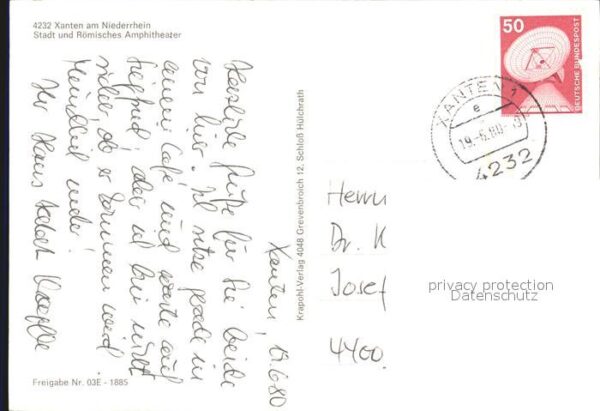 4232 Xanten am Niederrhein
Stadt und Römisches Amphitheater
Xanten, 19.6.80
Herzliche Grüße für Sie beide
von hier. Ich sitze gerade in
einem Café und warte auf
Siegfried, aber ich bin nicht
sicher ob er kommen wird
Ihr Hans
Freigabe Nr. 03E - 1885
Krapohl-Verlag 4048 Grevenbroich 12, Schloß Hülchrath
50
DEUTSCHE BUNDESPOST
XANTEN 1
e
19.-6.80
4232
Herrn
Dr. K
Josef
4400
privacy protection
Datenschutz